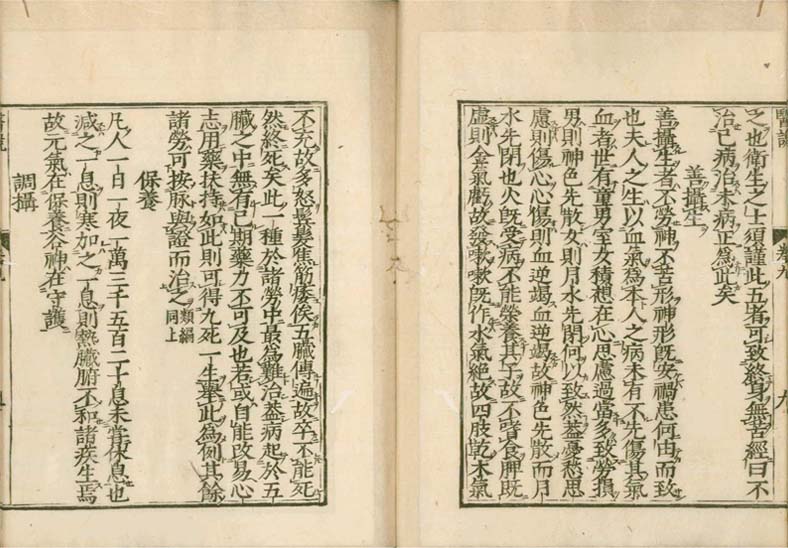 之也衛生之士須謹此五者可致終身無苦經曰不
治已病治未病正爲此矣
善攝生
善攝生者不勞神不苦形神形既安禍患何由而致
也夫人之生以血氣爲本人之病未有不先傷其氣
血者世有童男室女積想在心思慮過當多致勞損
男則神色先散女則月水先閉何以致然蓋憂愁思
慮則傷心心傷則血逆竭血逆竭故神色先散而月
水先閉也火既受病不能榮養其子故不嗜食脾既
虛則金氣虧故發嗽嗽既作水氣絕故四肢乾木氣
不充故多怒鬢髮焦筋痿俟五臟傳遍故卒不能死
然終死矣此一種於諸勞中最爲難治蓋病起於五
臟之中無有已期藥力不可及也若或自能改易心
志用藥扶持如此則可得九死一生舉此爲例其餘
諸勞可按脉與證而治之類編同上
保養
凡人一日一夜一萬三千五百二十息未嘗休息也
減之一息則寒加之一息則熱臟腑不和諸疾生焉
故元氣在保養谷神在守護
調攝